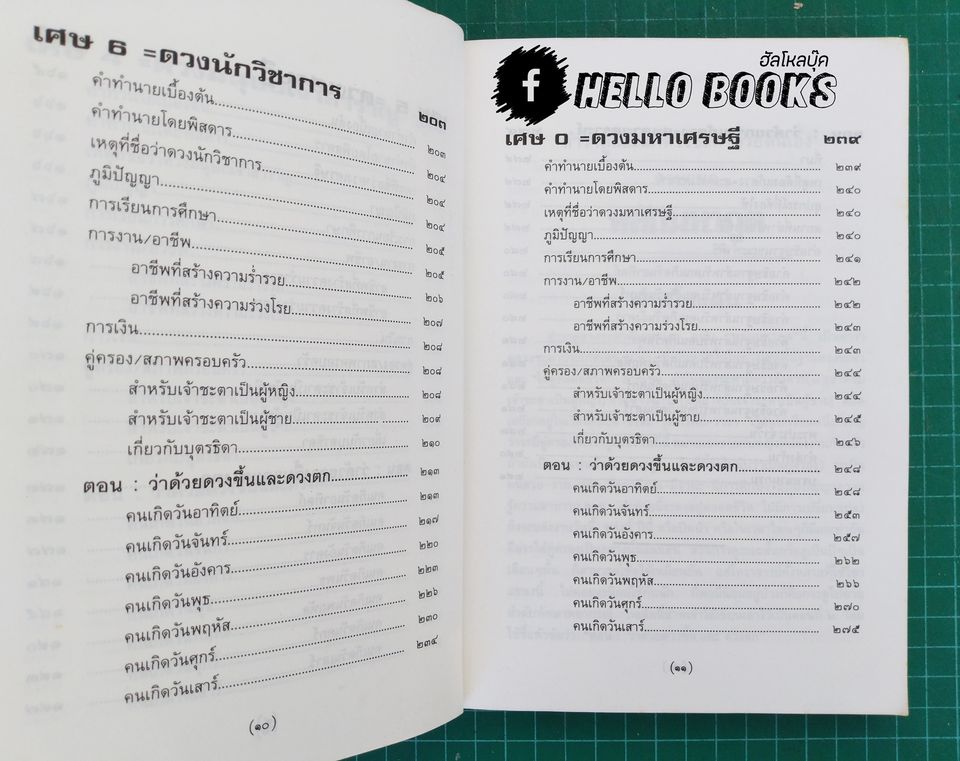 เศษ 6 =ดวงนักวิชาการ ๒๐๓
คำทำนายเบื้องต้น ๒๐๓
คำทำนายโดยพิสดาร ๒๐๔
เหตุที่ชื่อว่าดวงนักวิชาการ ๒๐๔
ภูมิปัญญา ๒๐๔
การเรียนการศึกษา ๒๐๕
การงาน/อาชีพ ๒๐๕
อาชีพที่สร้างความร่ำรวย ๒๐๖
อาชีพที่สร้างความร่วงโรย ๒๐๗
การเงิน ๒๐๘
คู่ครอง/สภาพครอบครัว ๒๐๘
สำหรับเจ้าชะตาเป็นผู้หญิง ๒๐๘
สำหรับเจ้าชะตาเป็นผู้ชาย ๒๐๙
เกี่ยวกับบุตรธิดา ๒๑๐
ตอน : ว่าด้วยดวงขึ้นและดวงตก ๒๑๓
คนเกิดวันอาทิตย์ ๒๑๓
คนเกิดวันจันทร์ ๒๑๗
คนเกิดวันอังคาร ๒๒๐
คนเกิดวันพุธ ๒๒๓
คนเกิดวันพฤหัส ๒๒๖
คนเกิดวันศุกร์ ๒๓๐
คนเกิดวันเสาร์ ๒๓๔
(๑๐)
ฮัลโหลบุ๊ค
f HELLO BOOKS
เศษ 0 =ดวงมหาเศรษฐี ๒๓๙
คำทำนายเบื้องต้น ๒๓๙
คำทำนายโดยพิสดาร ๒๔๐
เหตุที่ชื่อว่าดวงมหาเศรษฐี ๒๔๐
ภูมิปัญญา ๒๔๐
การเรียนการศึกษา ๒๔๑
การงาน/อาชีพ ๒๔๒
อาชีพที่สร้างความร่ำรวย ๒๔๒
อาชีพที่สร้างความร่วงโรย ๒๔๓
การเงิน ๒๔๓
คู่ครอง/สภาพครอบครัว ๒๔๔
สำหรับเจ้าชะตาเป็นผู้หญิง ๒๔๔
สำหรับเจ้าชะตาเป็นผู้ชาย ๒๔๕
เกี่ยวกับบุตรธิดา ๒๔๖
ตอน : ว่าด้วยดวงขึ้นและดวงตก ๒๔๘
คนเกิดวันอาทิตย์ ๒๔๘
คนเกิดวันจันทร์ ๒๕๓
คนเกิดวันอังคาร ๒๕๗
คนเกิดวันพุธ ๒๖๒
คนเกิดวันพฤหัส ๒๖๖
คนเกิดวันศุกร์ ๒๗๐
คนเกิดวันเสาร์ ๒๗๕
(๑๑)